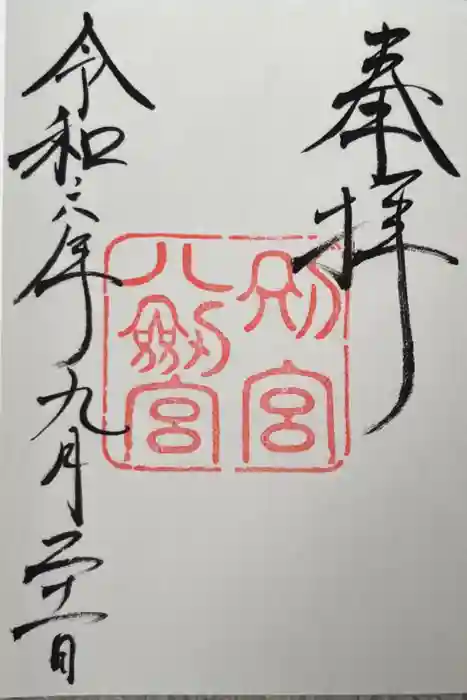 奉拝
別宮
八劍宮
令和六年九月二十一日